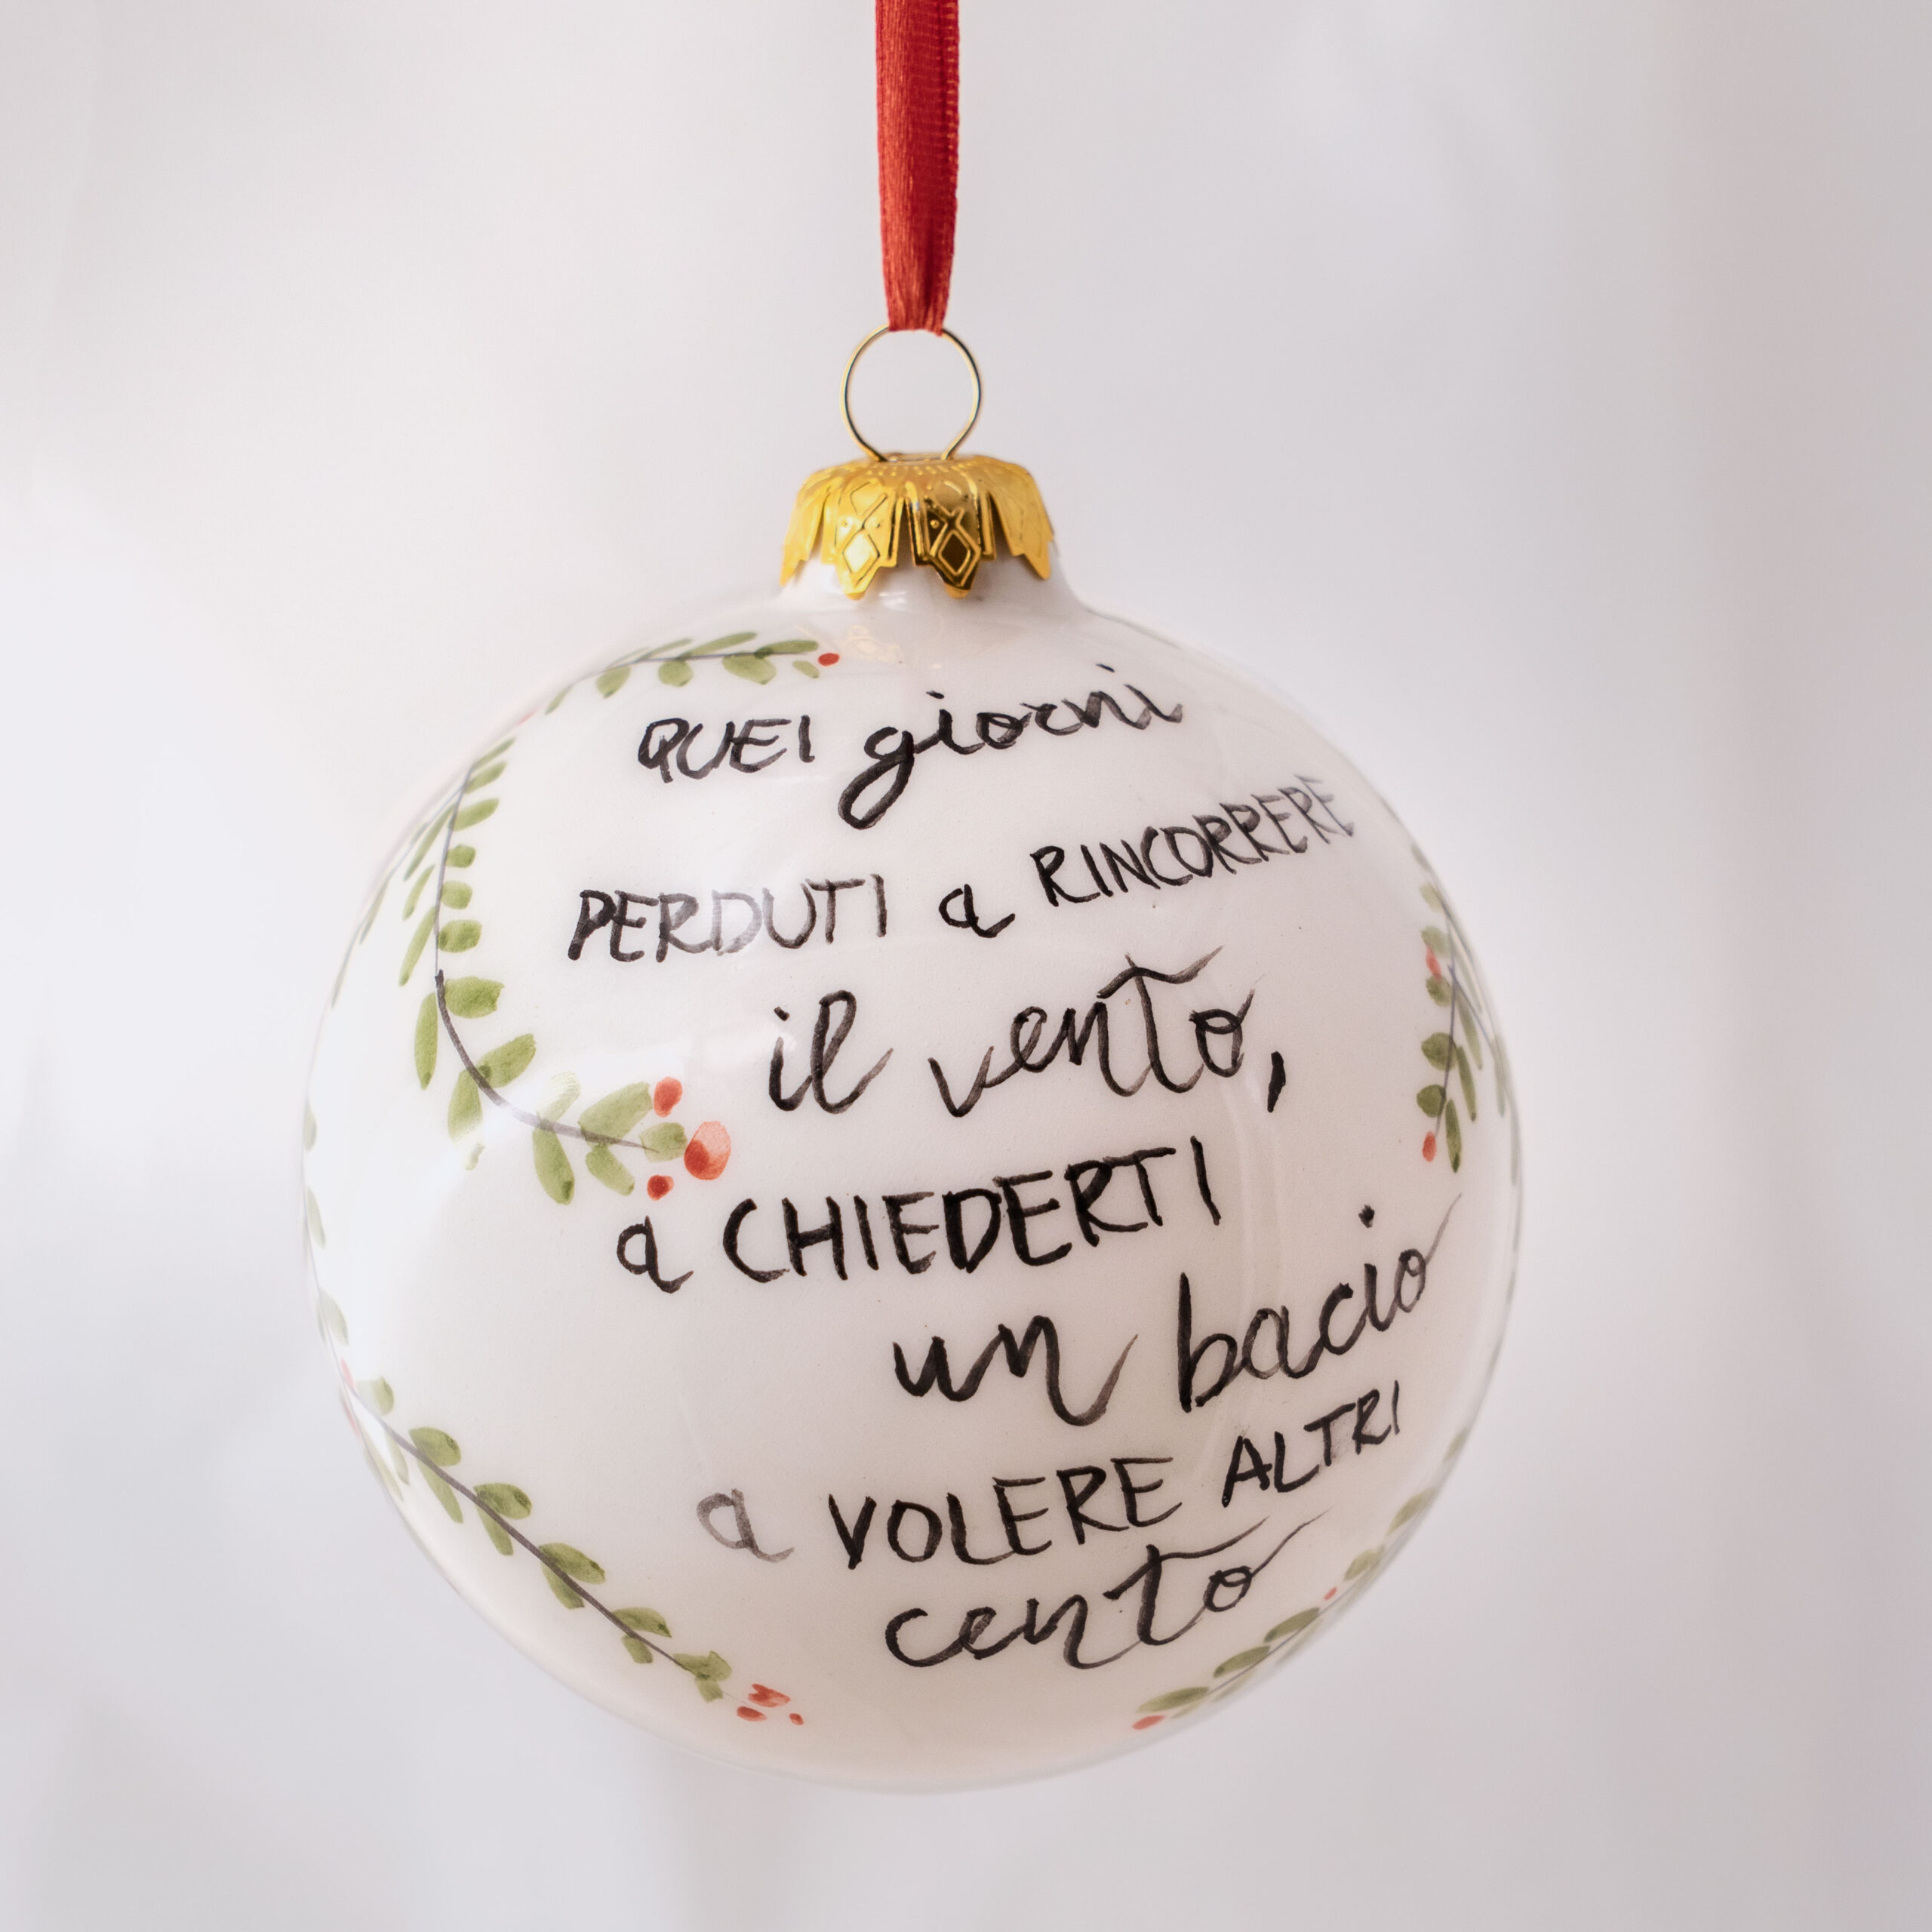 QUEI giorni
PERDUTI a RINCORRERE
il vento,
a CHIEDERTI
un bacio
a VOLERE ALTRI
cento